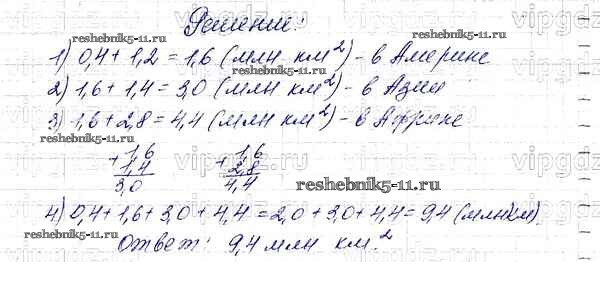 Решение:
1) 0,4 + 1,2 = 1,6 (млн км²) - в Америке
2) 1,6 + 1,4 = 3,0 (млн км²) - в Азии
3) 1,6 + 2,8 = 4,4 (млн км²) - в Африке
+ 1,6 + 1,6
1,4 2,8
3,0 4,4
4) 0,4 + 1,6 + 3,0 + 4,4 = 2,0 + 3,0 + 4,4 = 9,4 (млн км).
Ответ: 9,4 млн км.²
reshebnik5-11.ru
reshebnik5-11.ru
reshebnik5-11.ru
reshebnik5-11.ru
reshebnik5-11.ru
vipgdz
vipgdz
vipgdz